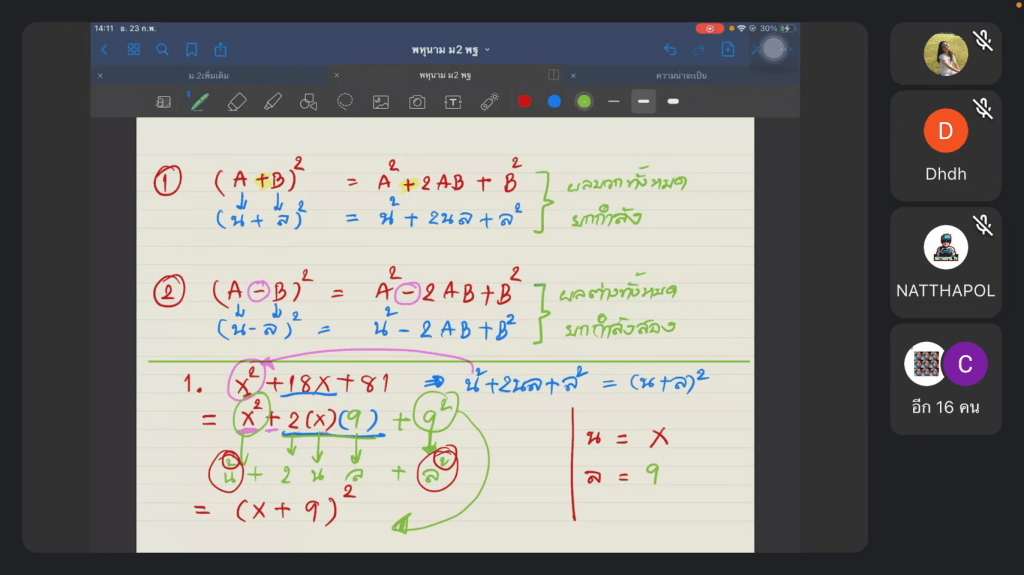 14:11 อ. 23 ก.พ.
30%
พหุนาม ม2 พฐ
ม.2เพิ่มเติม
พหุนาม ม2 พฐ
ความน่าจะเป็น
① (A + B)² = A² + 2AB + B²
ผลบวกทั้งหมด
(น + ล)² = น² + 2นล + ล²
ยกกำลัง
② (A - B)² = A² - 2AB + B²
ผลต่างทั้งหมด
(น - ล)² = น² - 2AB + B²
ยกกำลังสอง
1. x² + 18x + 81 ⇒ น² + 2นล + ล² = (น + ล)²
= x² + 2(x)(9) + 9²
น = x
น² + 2 น ล + ล²
ล = 9
= (x + 9)²
D
Dhdh
NATTHAPOL
C
อีก 16 คน